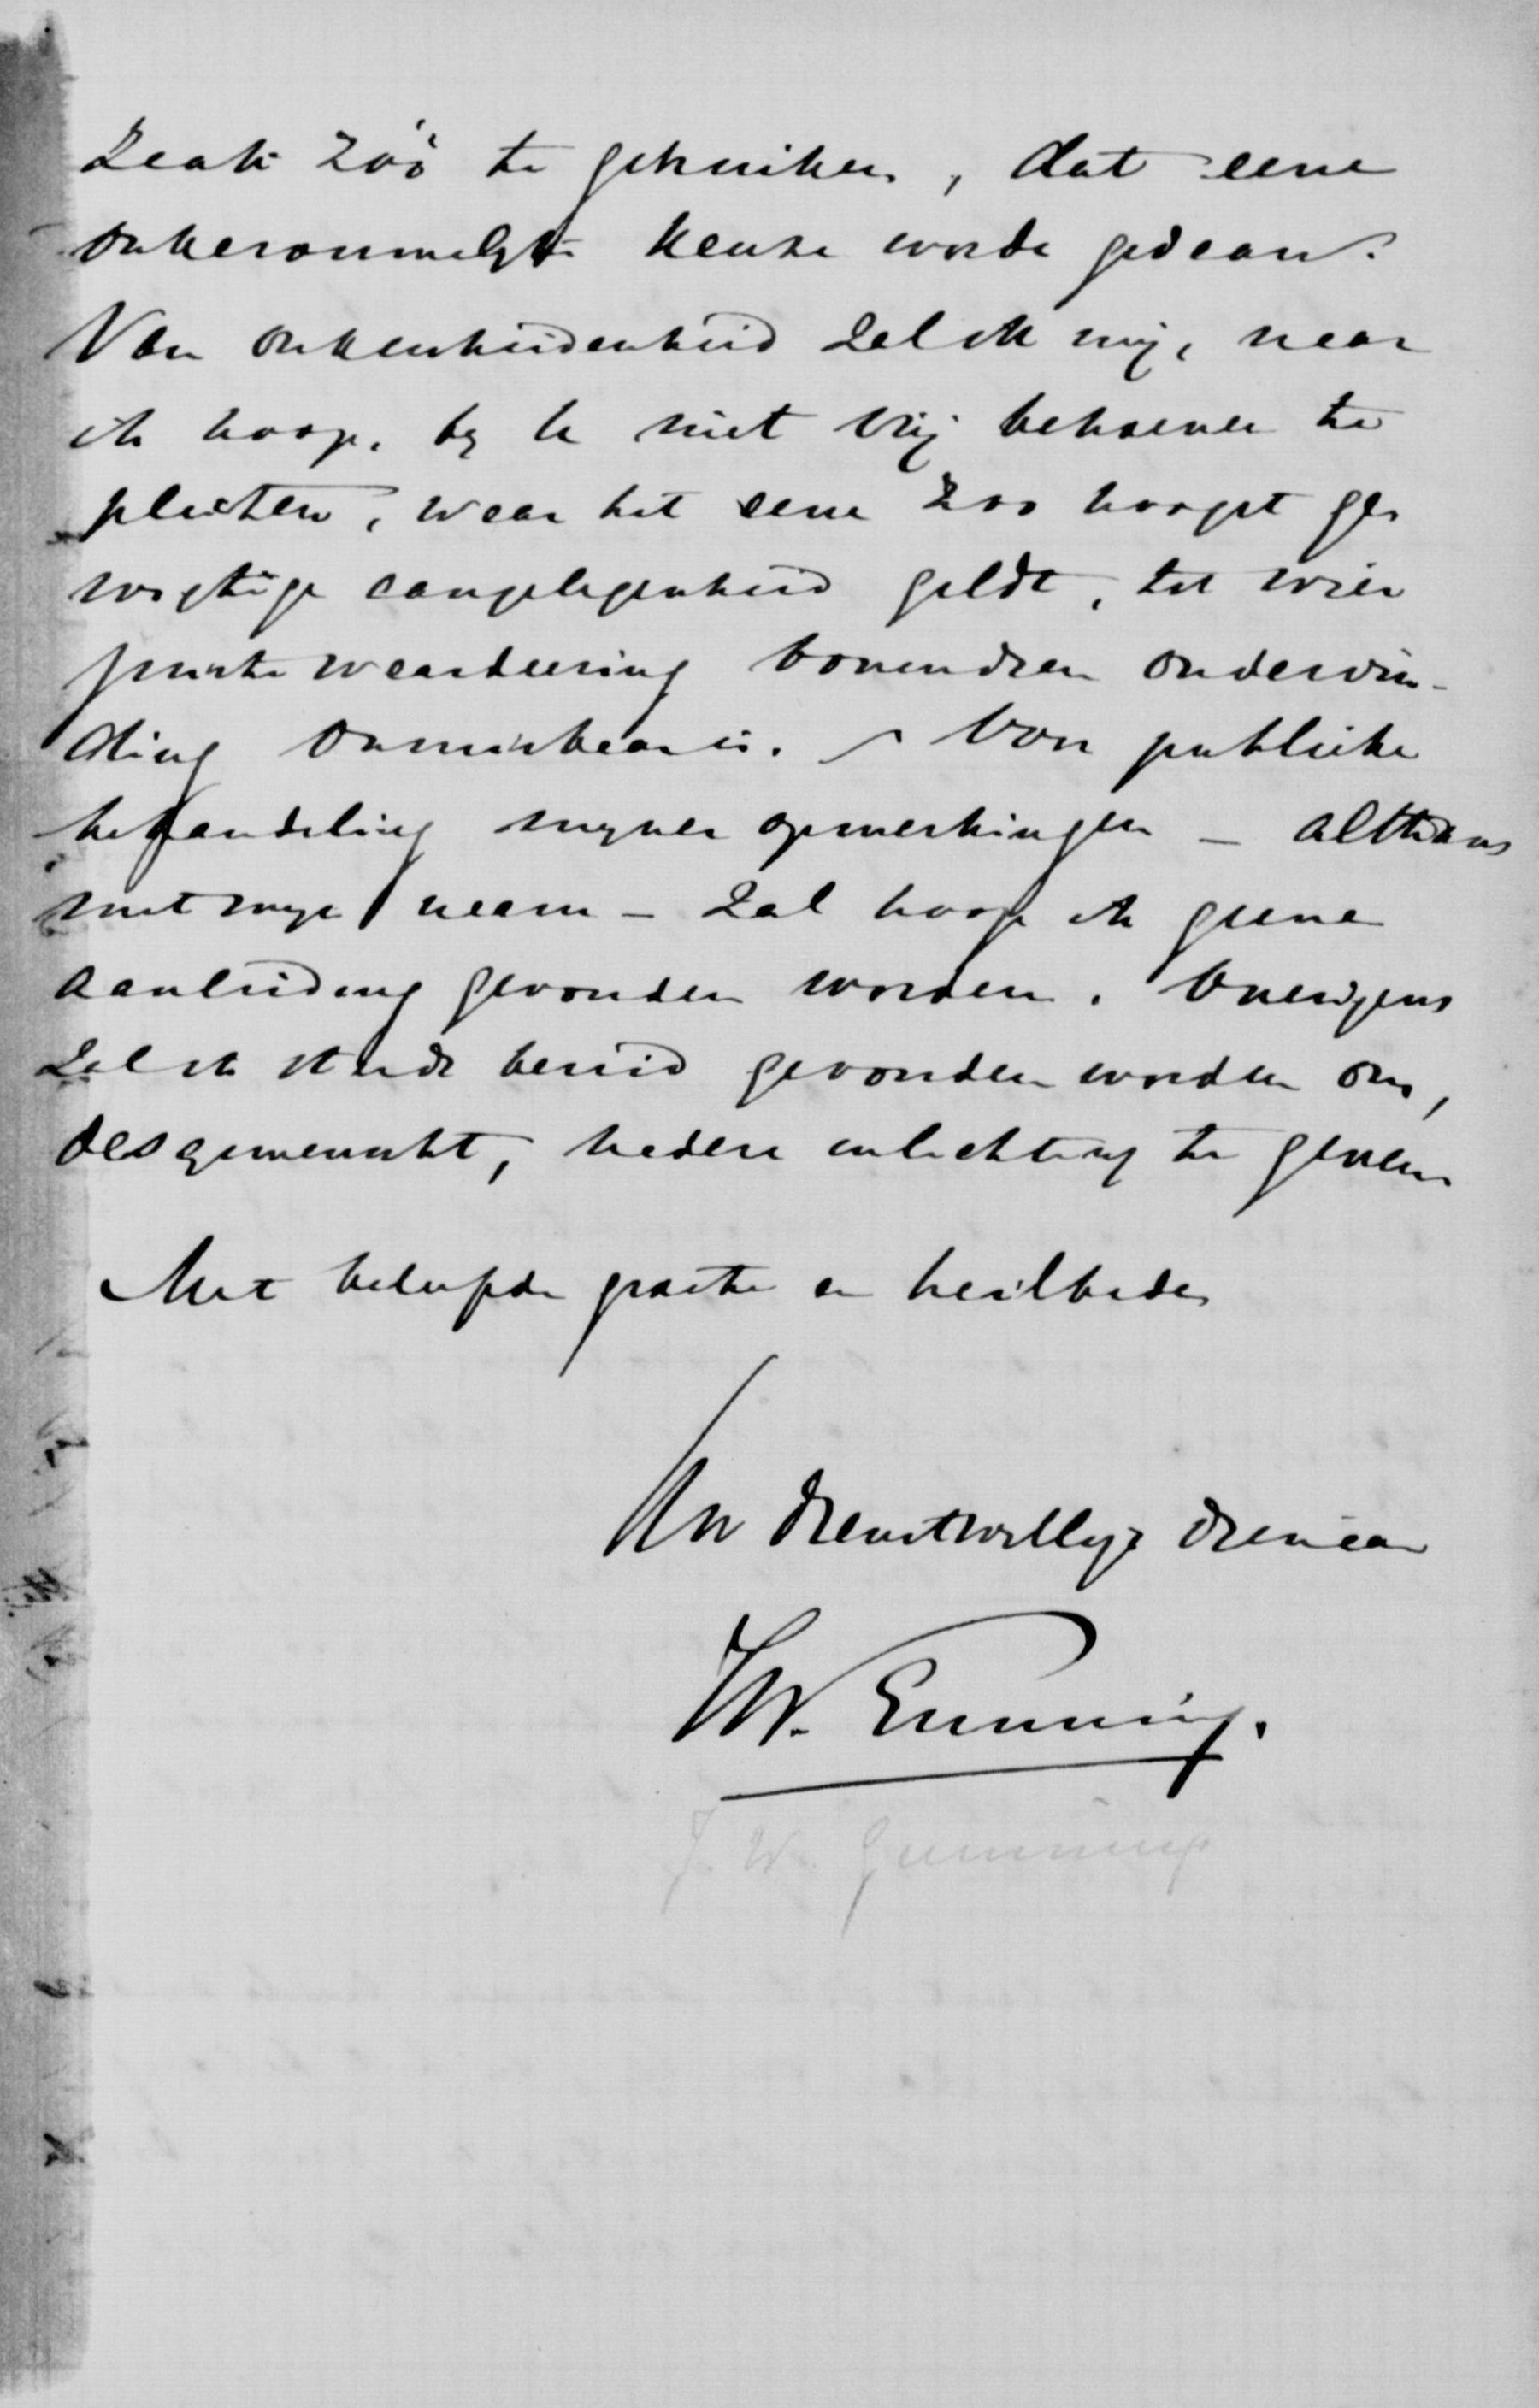 zaak zóó te gebruiken, dat eene
onberommelyke keuze worde gedaan.
Van onbescheidenheid zal ik mij, naar
ik hoop, by U niet vrij behoeven te
pleiten, waar het eene zoo hoogst ge
wigtige aangelegenheid geldt, tot wier
juiste waardeering bovendien ondervin-
ding onmisbaar is. Voor publieke
behandeling mijner opmerkingen – althans
met myn naam – zal hoop ik geene
aanleiding gevonden worden. Overigens
zal ik steeds bereid gevonden worden om,
desgewenscht, nadere inlichting te geven
Met beleefde groete en heilbede
Uw dienstwillige dienaar
JW. Gunning.
J. W. Gunning